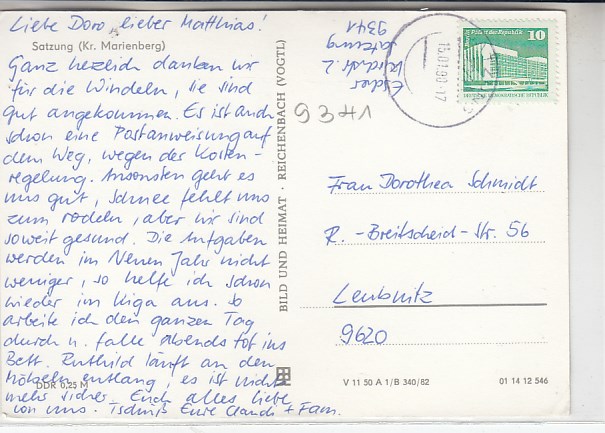 Liebe Doro, lieber Matthias!
Satzung (Kr. Marienberg)
Ganz herzlich danken wir
für die Windeln, sie sind
gut angekommen. Es ist auch
schon eine Postanweisung auf
dem Weg, wegen der Kosten-
regelung. Ansonsten geht es
uns gut, Schnee fehlt uns
zum rodeln, aber wir sind
soweit gesund. Die Aufgaben
werden im Neuen Jahr nicht
weniger, so helfe ich schon
wieder im Kiga aus. So
arbeite ich den ganzen Tag
durch u. falle abends tot ins
Bett. Ruthild läuft an den
Möbeln entlang, es ist nichts
mehr sicher. Euch alles liebe
von uns. Tschüß Eure Claudi + Fam.
DDR 0,25 M
BILD UND HEIMAT · REICHENBACH (VOGTL)
Kirchstr. 2
Satzung
9341
9341
PALAST der Republik
10
DEUTSCHE DEMOKRATISCHE REPUBLIK
Frau Dorothea Schmidt
R.-Breitscheid-Str. 56
Leubnitz
9620
V 11 50 A 1/B 340/82
01 14 12 546